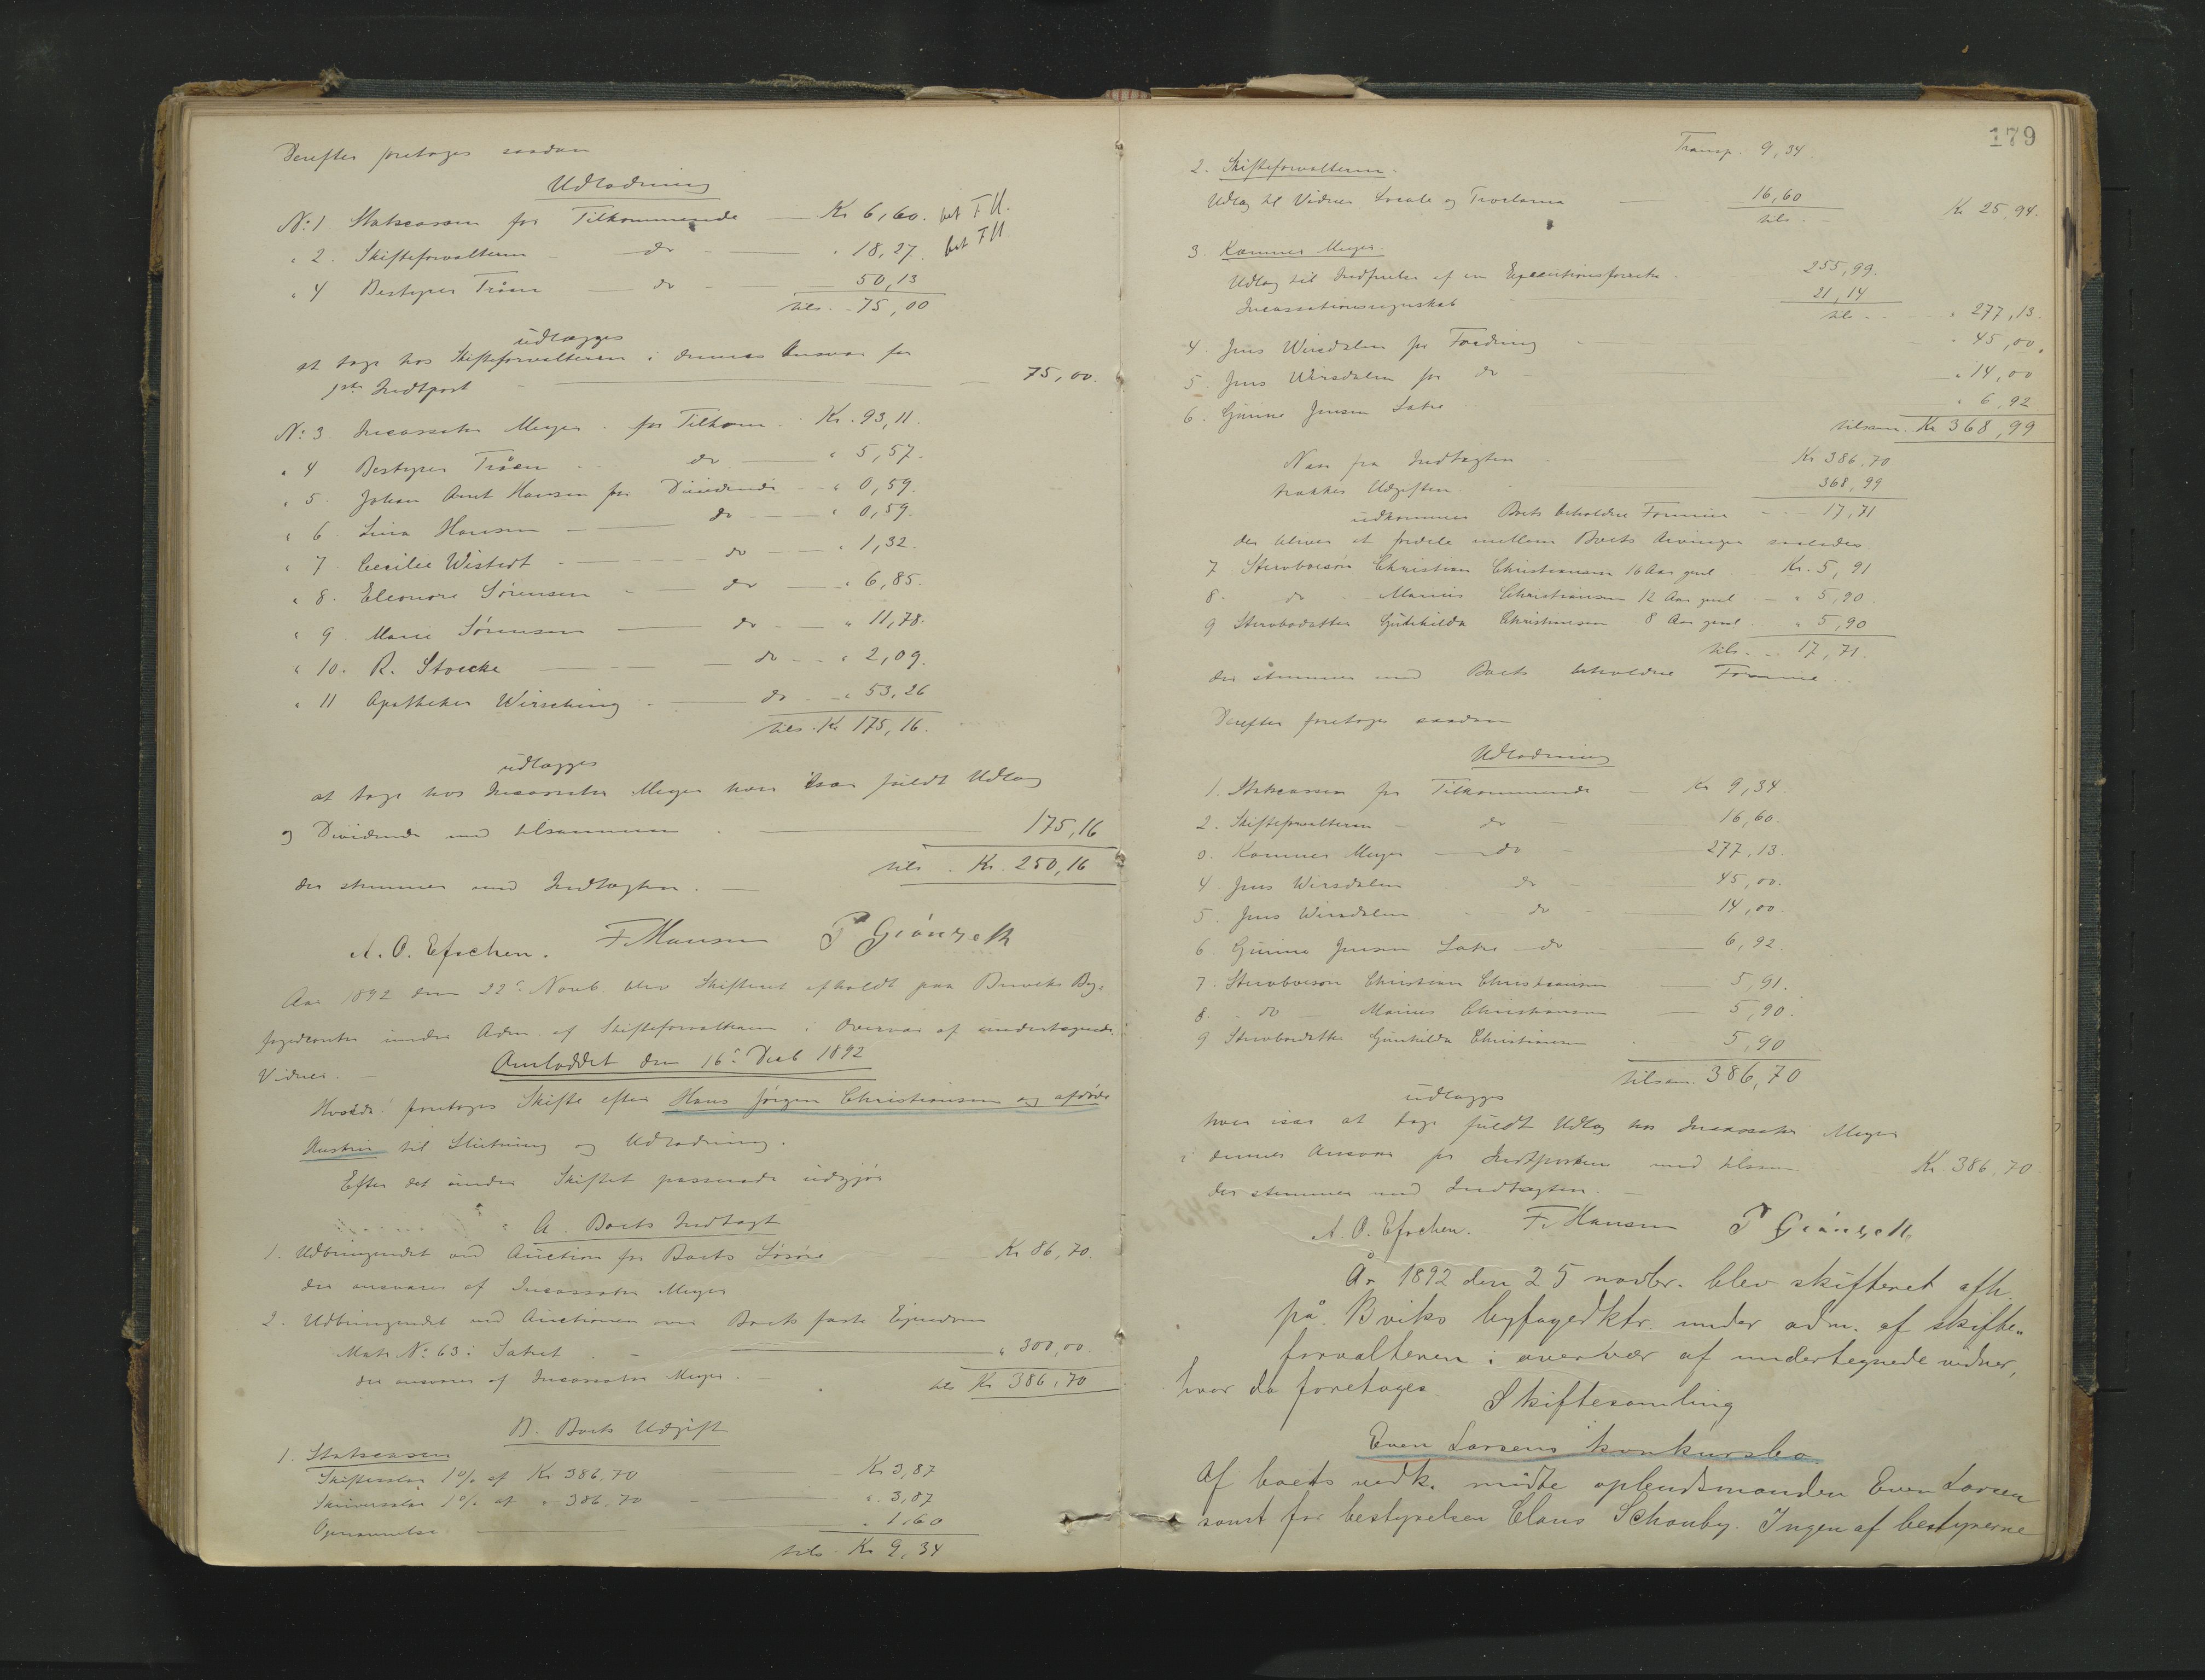 Derefter foretoges saadan
Udlodning
No: 1 Statscassen for Tilkommende — Kr 6,60. bet FH.
" 2. Skifteforvalteren — do — " 18,27. bet FH
" 4 Bestyrer Tråen — do — 50,13
tils. 75,00
udlægges
at tage hos Skifteforvalteren i dennes Ansvar for
1ste Indtpost — 75,00.
No: 3. Incassator Meyer. for Tilkom. Kr. 93,11.
" 4 Bestyrer Tråen do — " 5,57.
" 5. Johan Arnt Hansen for Dividende " 0,59.
" 6. Lina Hansen — do — " 0,59.
" 7. Cecilie Wistedt — do — " 1,32.
" 8. Eleonore Sørensen — do — " 6,85.
" 9. Marie Sørensen — do — " 11,78.
" 10. R. Stoecke — do — " 2,09.
" 11 Apotheker Wirsching — do — " 53,26
tils. Kr 175,16.
udlægges
at tage hos Incassator Meyer hver især fuldt Udlæg
og Dividende med tilsammen — 175,16
tils. Kr. 250,16
der stemmer med Indtægten. —
A. O. Efschen. F. Hansen P Grönzeth
Aar 1892 den 22de Novb. blev Skifteret afholdt paa Breviks By-
fogedcontor under Adm. af Skifteforvalteren i Overvær af undertegnede
Vidner. —
Omloddet den 16de Decb 1892
Hvorda foretoges Skifte efter Hans Jörgen Christiansen og afdöde
Hustru til Slutning og Udlodning.
Efter det under Skiftet passerede udgjør
A. Boets Indtægt
1. Udbringendet ved Auction for Boets Løsøre Kr 86,70.
der ansvares af Incassator Meyer
2. Udbringendet ved Auctionen over Boets faste Eiendom
Matr No: 63 i Sætret. — " 300,00.
der ansvares af Incassator Meyer. tils Kr 386,70
B. Boets Udgift
1. Statscassen
Skiftesalær 1% af Kr 386,70 Kr 3,87
Skriversalær 1% af " 386,70 — " 3,87
Opnævnelse — " 1,60
tils. Kr 9,34
179
Transp. 9,34.
2. Skifteforvalteren.
Udlæg til Vidner Locale og Proclama — 16,60
tils. — Kr 25,94.
3. Kæmner Meyer.
Udlæg til Indfrielse af en Executionsforretn. 255,99.
Incassationsregnskab 21,14
tils. " 277,13.
4. Jens Wirsdalen for Fordring — " 45,00.
5. Jens Wirsdalen for do — " 14,00
6. Gunne Jensen Sætre " 6,92
tilsam. Kr 368,99
Naar fra Indtægten Kr 386,70
trækkes Udgiften 368,99
udkommer Boets beholdne Formue — 17,71
der bliver at fordele mellem Boets Arvinger saaledes.
7 Stervboesøn Christian Christiansen 16 Aar gml Kr. 5,91
8. do Marius Christiansen 12 Aar gml — " 5,90.
9 Stervbodatter Gunhilda Christiansen 8 Aar gml. " 5,90
tils. 17,71.
der stemmer med Boets beholdne Formue.
Derefter foretoges saadan
Udlodning
1. Statscassen for Tilkommende — Kr 9,34.
2. Skifteforvalteren — do — 16,60.
3. Kæmner Meyer — do — 277,13.
4. Jens Wirsdalen do — 45,00.
5. Jens Wirsdalen do — 14,00.
6. Gunne Jensen Sætre — do — 6,92.
7. Stervboesøn Christian Christiansen — 5,91.
8. — do — Marius Christiansen — 5,90.
9 Stervbodatter Gunhilda Christiansen 5,90
tilsam. 386,70
udlægges
hver især at tage fuldt Udlæg hos Incassator Meyer
i dennes Ansvar for Indtposterne med tilsam Kr. 386,70
der stemmer med Indtægten. —
A. O. Efschen. F. Hansen P Grönzeth
År 1892 den 25 novbr. blev skifteret afh.
på Bviks byfogedktr. under adm. af skifte-
forvalteren i overvær af undertegnede vidner,
hvor da foretoges Skiftesamling
i
Even Larsens konkursbo.
Af boets vedk. mødte opbudsmanden Even Larsen
samt for bestyrelsen Claus Schouby. Ingen af bestyrerne